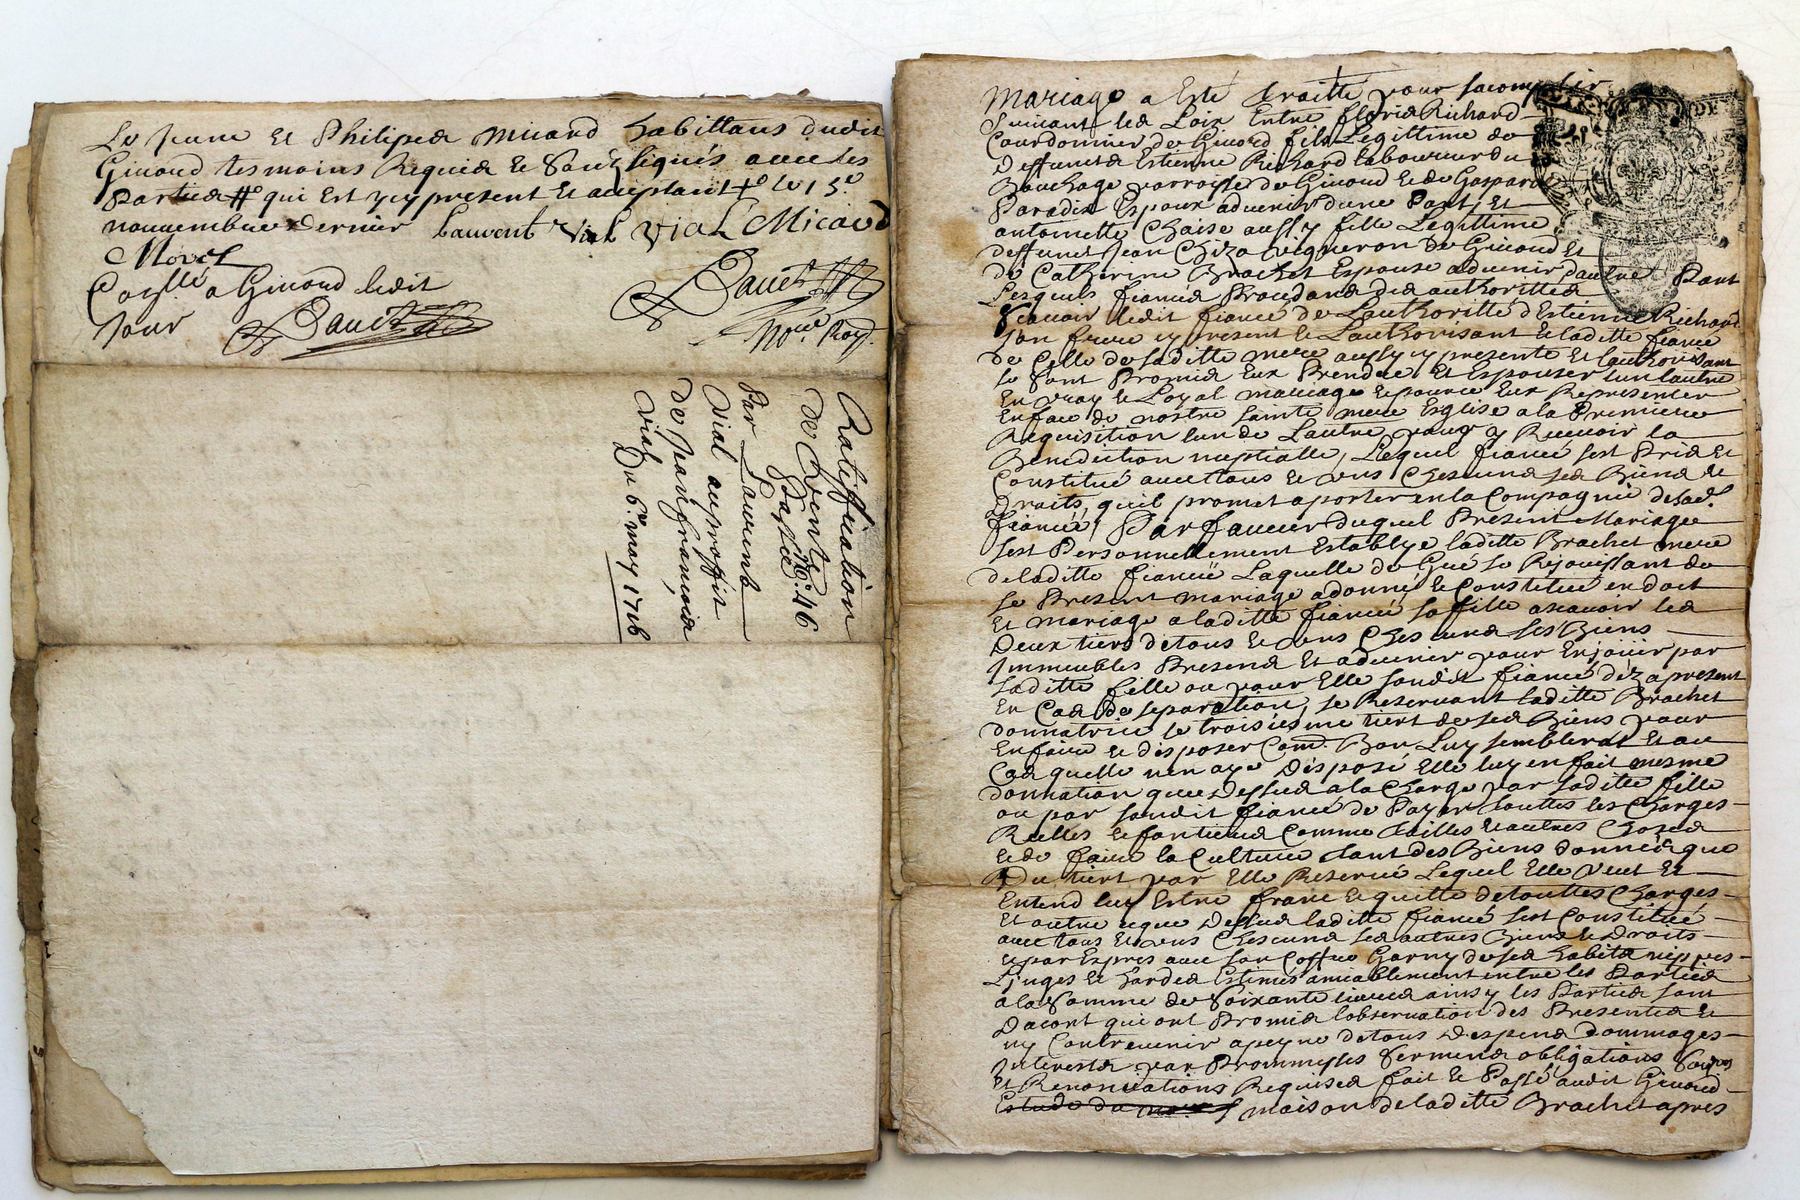 Le jeune Et Philiper Micaud habittans dudit
Givord tesmoins Requis Et Soûzsignés avec les
Parties # qui Est y cy present Et acceptant + le 15e
nouvembre dernier Laurent Vial Vial Micaud
Morel
Coxllé a Givord ledit
jour
Noire Roy.
Ratiffication
de Vente
Passée
Par Laurent
Vial au proffit
de jean françois
Vial
Du 6e may 1716
No. 46
Mariage a Esté traitté pour sacomplir
Suivant les Loix Entre Richard
Courdonnier de Givord fils Legittime de
deffuncts Estienne Richard laboureur du
Bouchage parroisse de Givord Et de Gasparde
Paradix Espoux advenir dune Part, Et
antoinette Chaise aussy fille Legittime
deffunct Jean Chiza vigneron de Givord Et
de Catherine Brachet Espouse advenir dautre Part
Lesquels fiancés Proceddans des authorittés
Sçavoir ledit fiancé de Lauthoritté d'Estienne Richard
son frere cy present Et Lauthorisant Et laditte fiancée
de Celle de saditte mere aussy cy presente Et lauthorisant
se sont Promis Eux Prendre Et Espouser lun lautre
En vray Et Loyal mariage Et pource Eux Representer
En face de nostre sainte mere Esglise a la Premiere
Requisition lun de Lautre pour y Recevoir la
Benediction nuptialle, Lequel fiancé sest Pris Et
Constitué avec tous Et uns Chescuns ses Biens Et
Droits, quil promet aporter en la Compagnie de sad.
fiancée, Par faveur duquel Present Mariage
sest Personnellement Establye laditte Brachet mere
de laditte fiancée Laquelle de Gré se Rejouissant de
se Present mariage a donné Et Constitué en doct
Et mariage a laditte fiancée sa fille ascavoir les
Deux tiers de tous Et uns Chescuns ses Biens
Immeubles Presens Et advenir pour En jouir par
saditte fille ou pour Elle sondit fiancé dez a present
En Cas De separation, se Reservant laditte Brachet
donnatrice le troisiesme tiert de ses Biens pour
En faire Et disposer Com. Bon Luy semblerat Et au
Cas quelle nen aye Disposé Elle luy en fait mesme
donnation que Dessus a la Charge par saditte fille
ou par sondit fiancé de Payer touttes les Charges
Reelles Et fontieres Comme tailles Et autres Choses
Et de faire la Culture tant des Biens donnés que
Du tiert par Elle Reservé Lequel Elle veut Et
Entend luy Estre franc Et quitte de touttes Charges
Et outre ce que Dessus laditte fiancée sest Constituée
avec tous Et uns Chescuns ses autres Biens Et Droits
Et par Expres avec son Coffre Garny de ses habits nippes
Linges Et hardes Estimés amiablement entre les Parties
a la Somme de Soixante livres ainsy les Parties sont
Dacort qui ont Promis lobservation des Presentes Et
ny Contrevenir a peyne de tous Despens dommages
Interests par Prommesses Sermens obligations
Et Renonciations Requises fait Et Passé audit Givord
maison de laditte Brachet apres